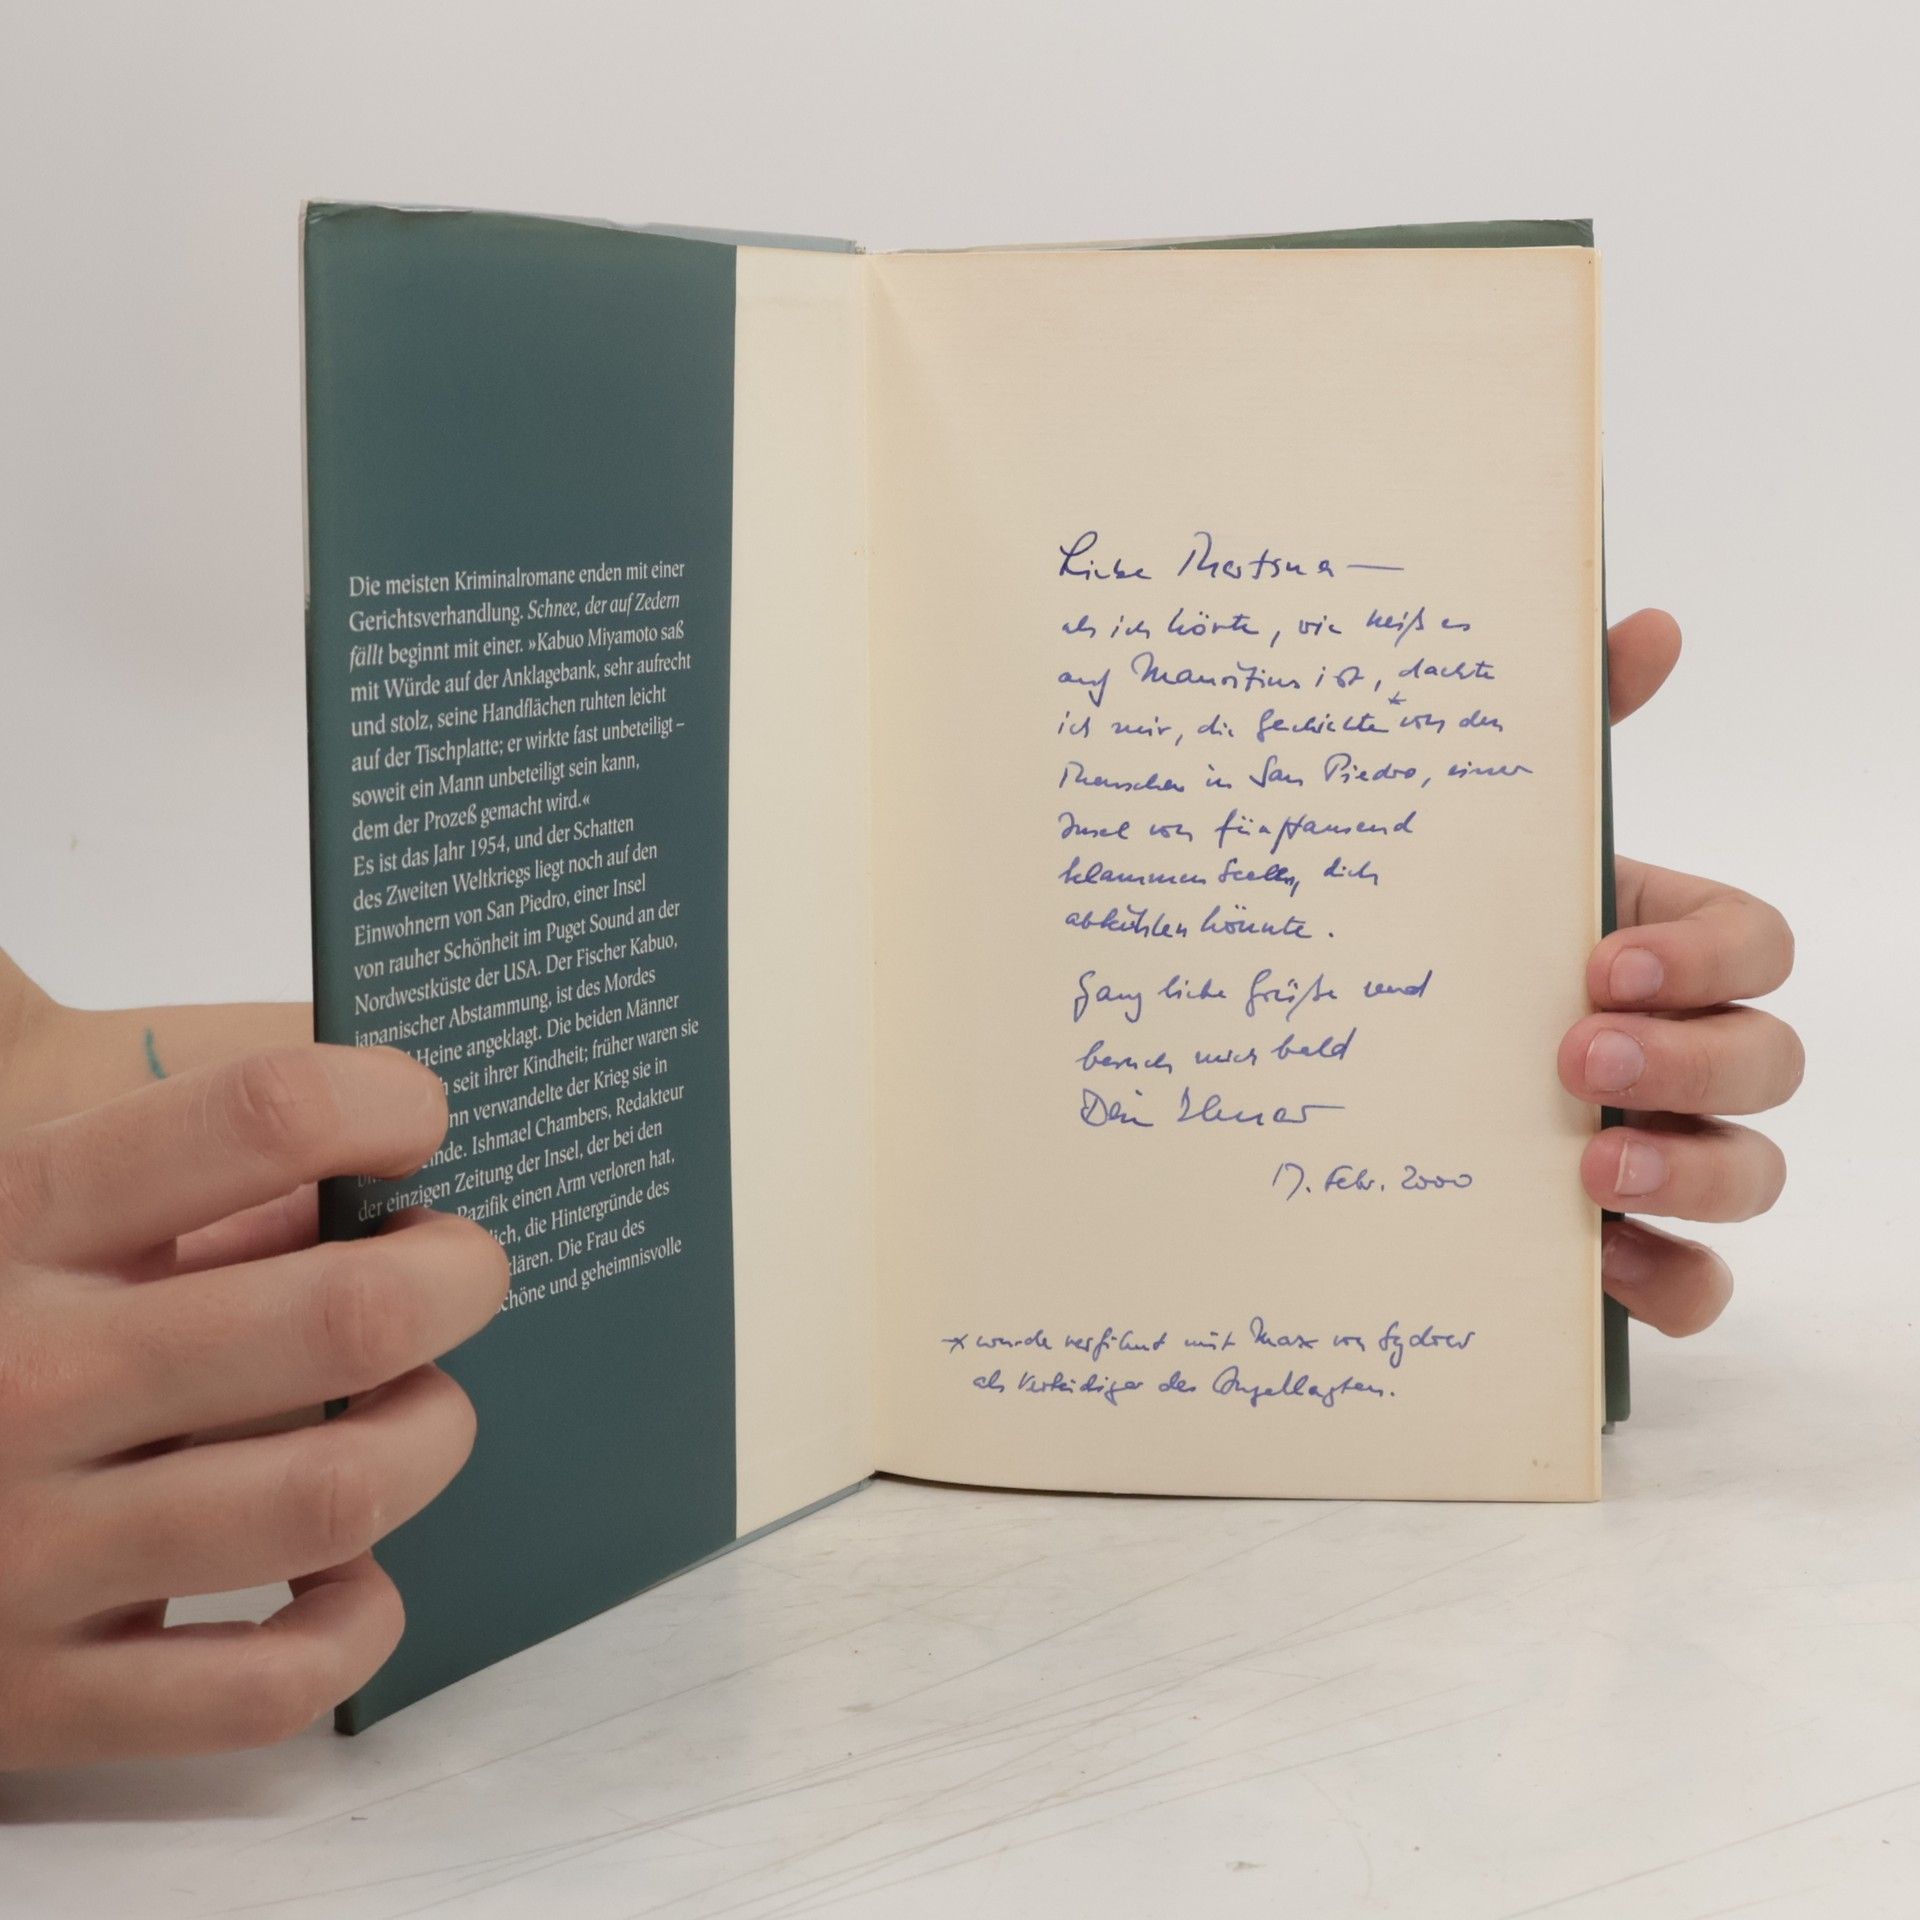 Die meisten Kriminalromane enden mit einer
Gerichtsverhandlung. Schnee, der auf Zedern
fällt beginnt mit einer. »Kabuo Miyamoto saß
mit Würde auf der Anklagebank, sehr aufrecht
und stolz, seine Handflächen ruhten leicht
auf der Tischplatte; er wirkte fast unbeteiligt –
soweit ein Mann unbeteiligt sein kann,
dem der Prozeß gemacht wird.«
Es ist das Jahr 1954, und der Schatten
des Zweiten Weltkriegs liegt noch auf den
Einwohnern von San Piedro, einer Insel
von rauher Schönheit im Puget Sound an der
Nordwestküste der USA. Der Fischer Kabuo,
japanischer Abstammung, ist des Mordes
Heine angeklagt. Die beiden Männer
seit ihrer Kindheit; früher waren sie
verwandelte der Krieg sie in
Ishmael Chambers, Redakteur
der einzigen Zeitung der Insel, der bei den
Pazifik einen Arm verloren hat,
die Hintergründe des
Die Frau des
und geheimnisvolle
Liebe
als ich hörte, wie heiß es
auf Mauritius ist, dachte
ich mir, die Geschichte * von den
Menschen in San Piedro, einer
Insel von fünftausend
klammen Seelen, dich
abkühlen könnte.
Ganz liebe Grüße und
besuch mich bald
Dein
17. Febr. 2000
* wurde verfilmt mit Max von Sydow
als Verteidiger des Angeklagten.